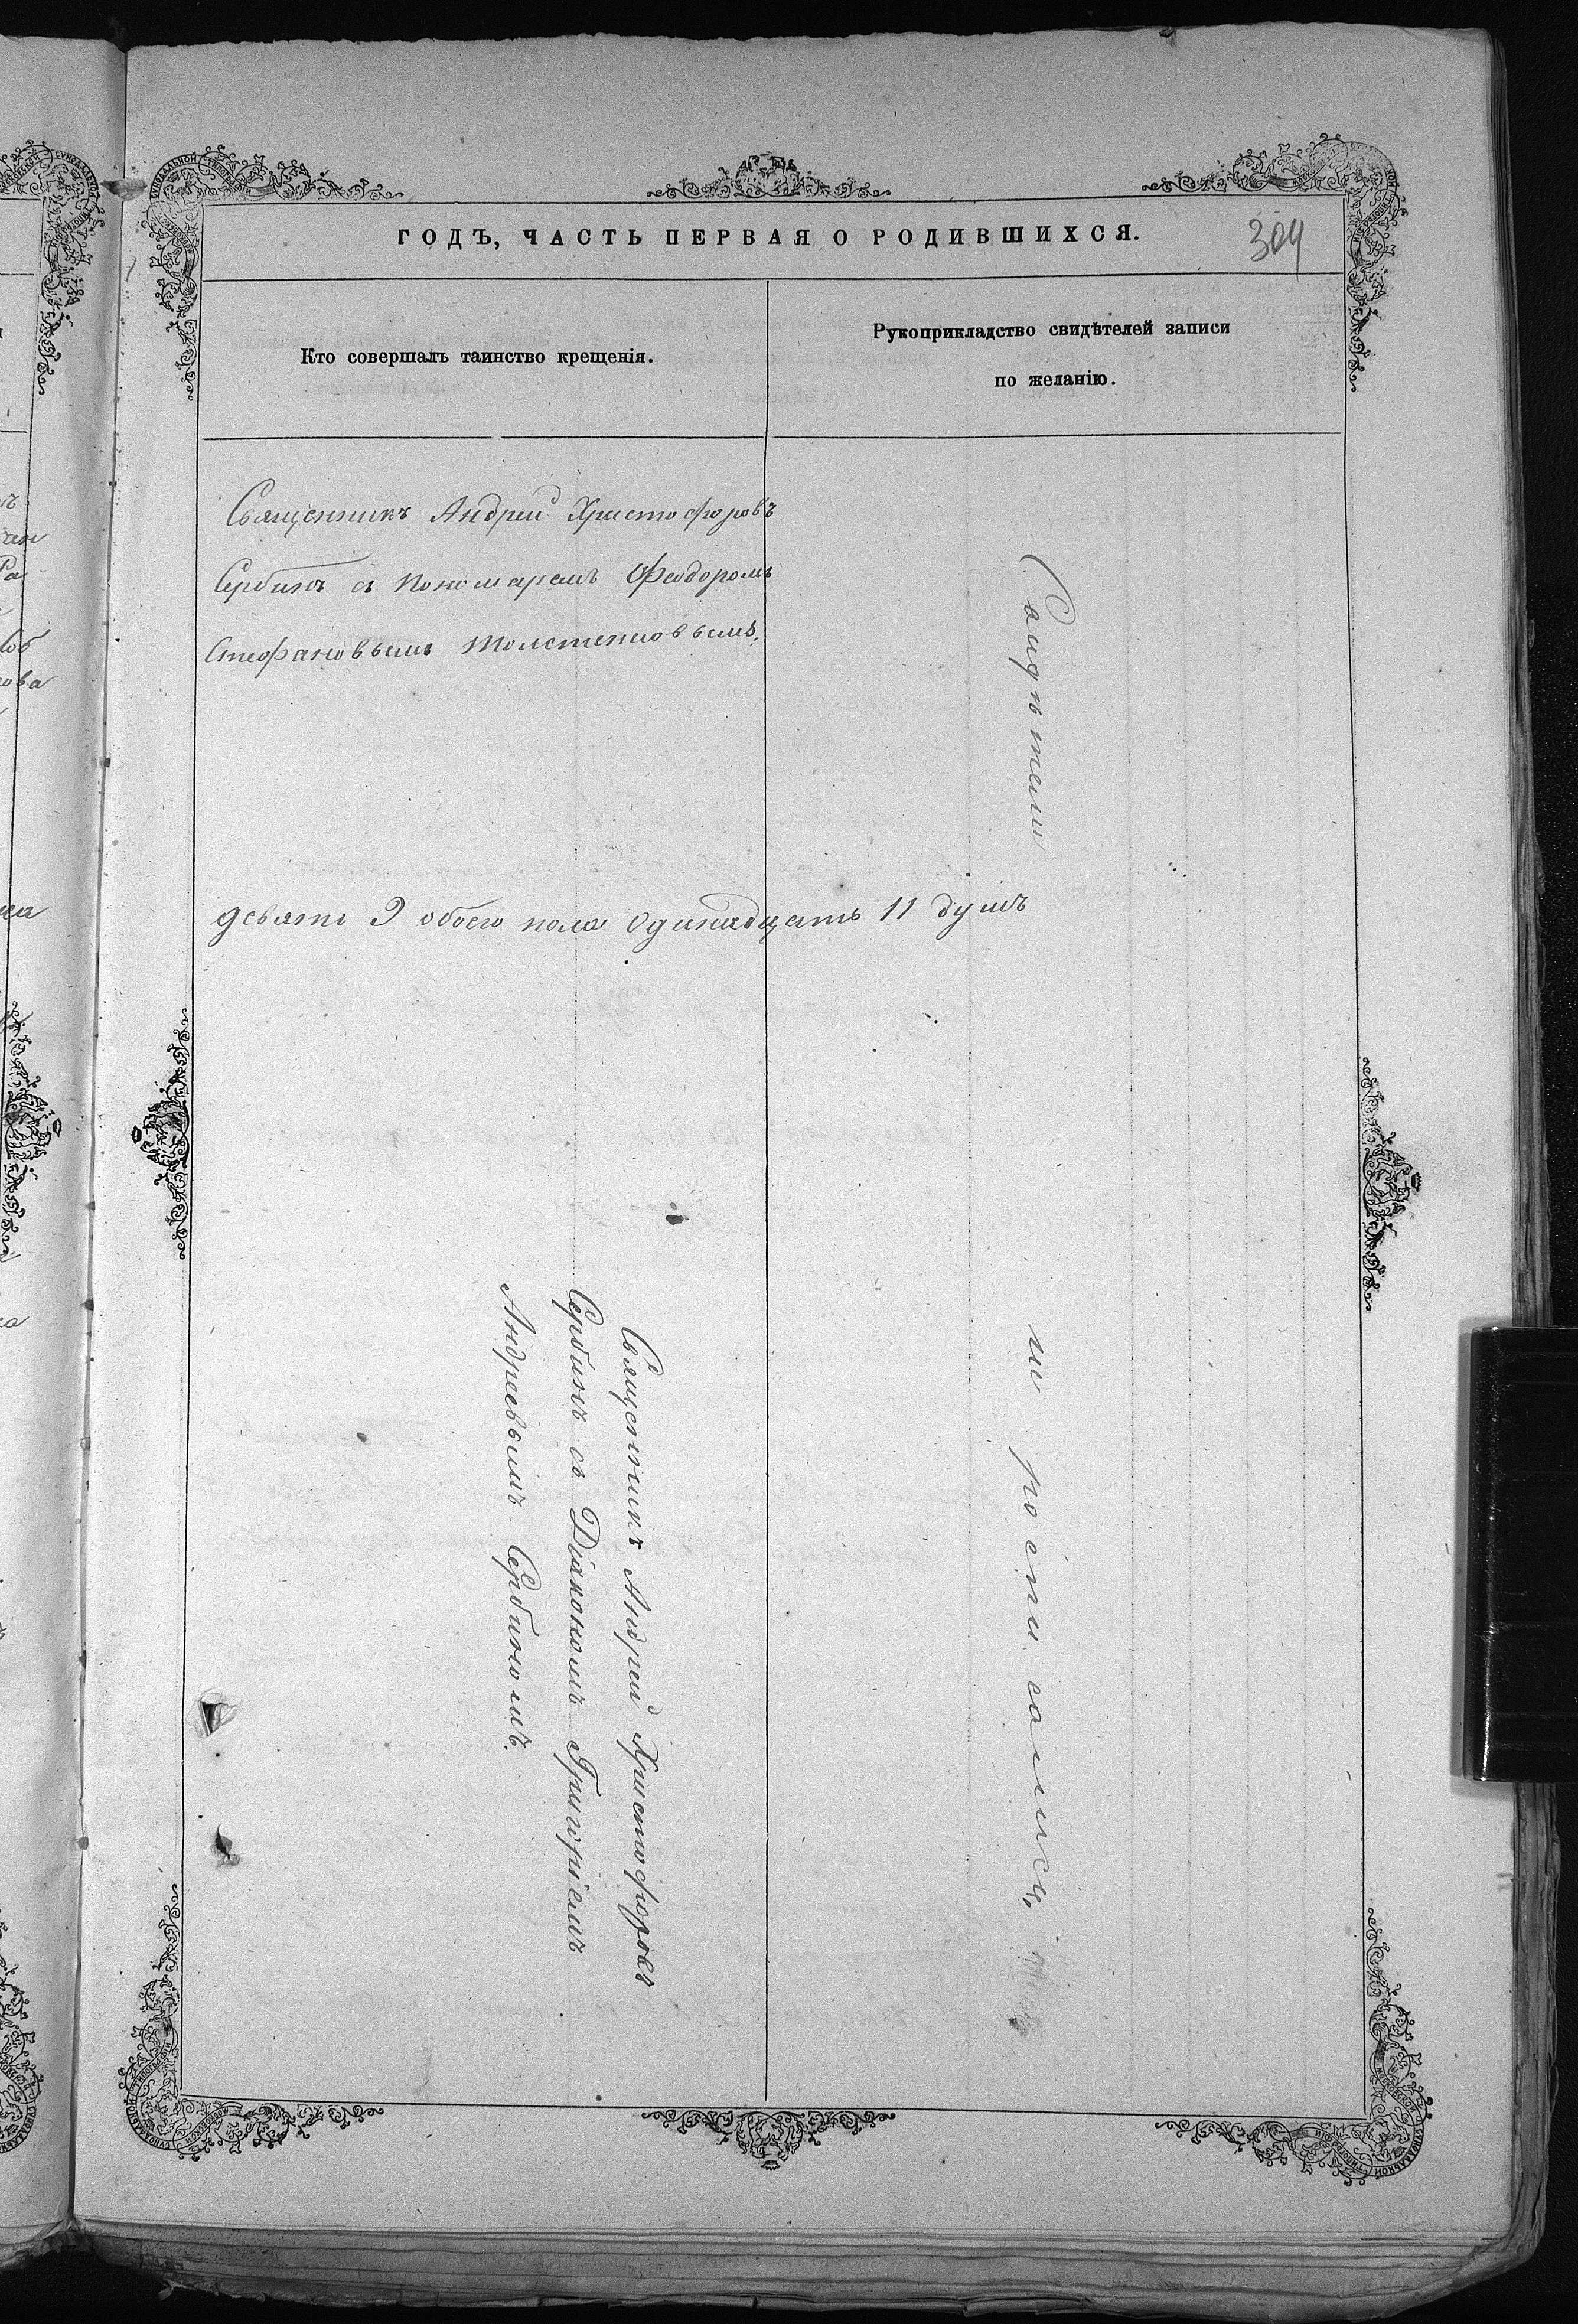 ГОДЪ, ЧАСТЬ ПЕРВАЯ О РОДИВШИХСЯ.
304
Кто совершалъ таинство крещенія.
Рукоприкладство свидѣтелей записи
по желанію.
Священникъ Андрей Христофоровъ
Сербинъ съ пономаремъ Феодоромъ
Стефановымъ
девять 9 обоего пола одинадцать 11 душъ
Священникъ Андрей Христофоровъ
Сербинъ съ Діакономъ Григоріемъ
Андреевымъ Сербиномъ.
Свидѣтели не росписались